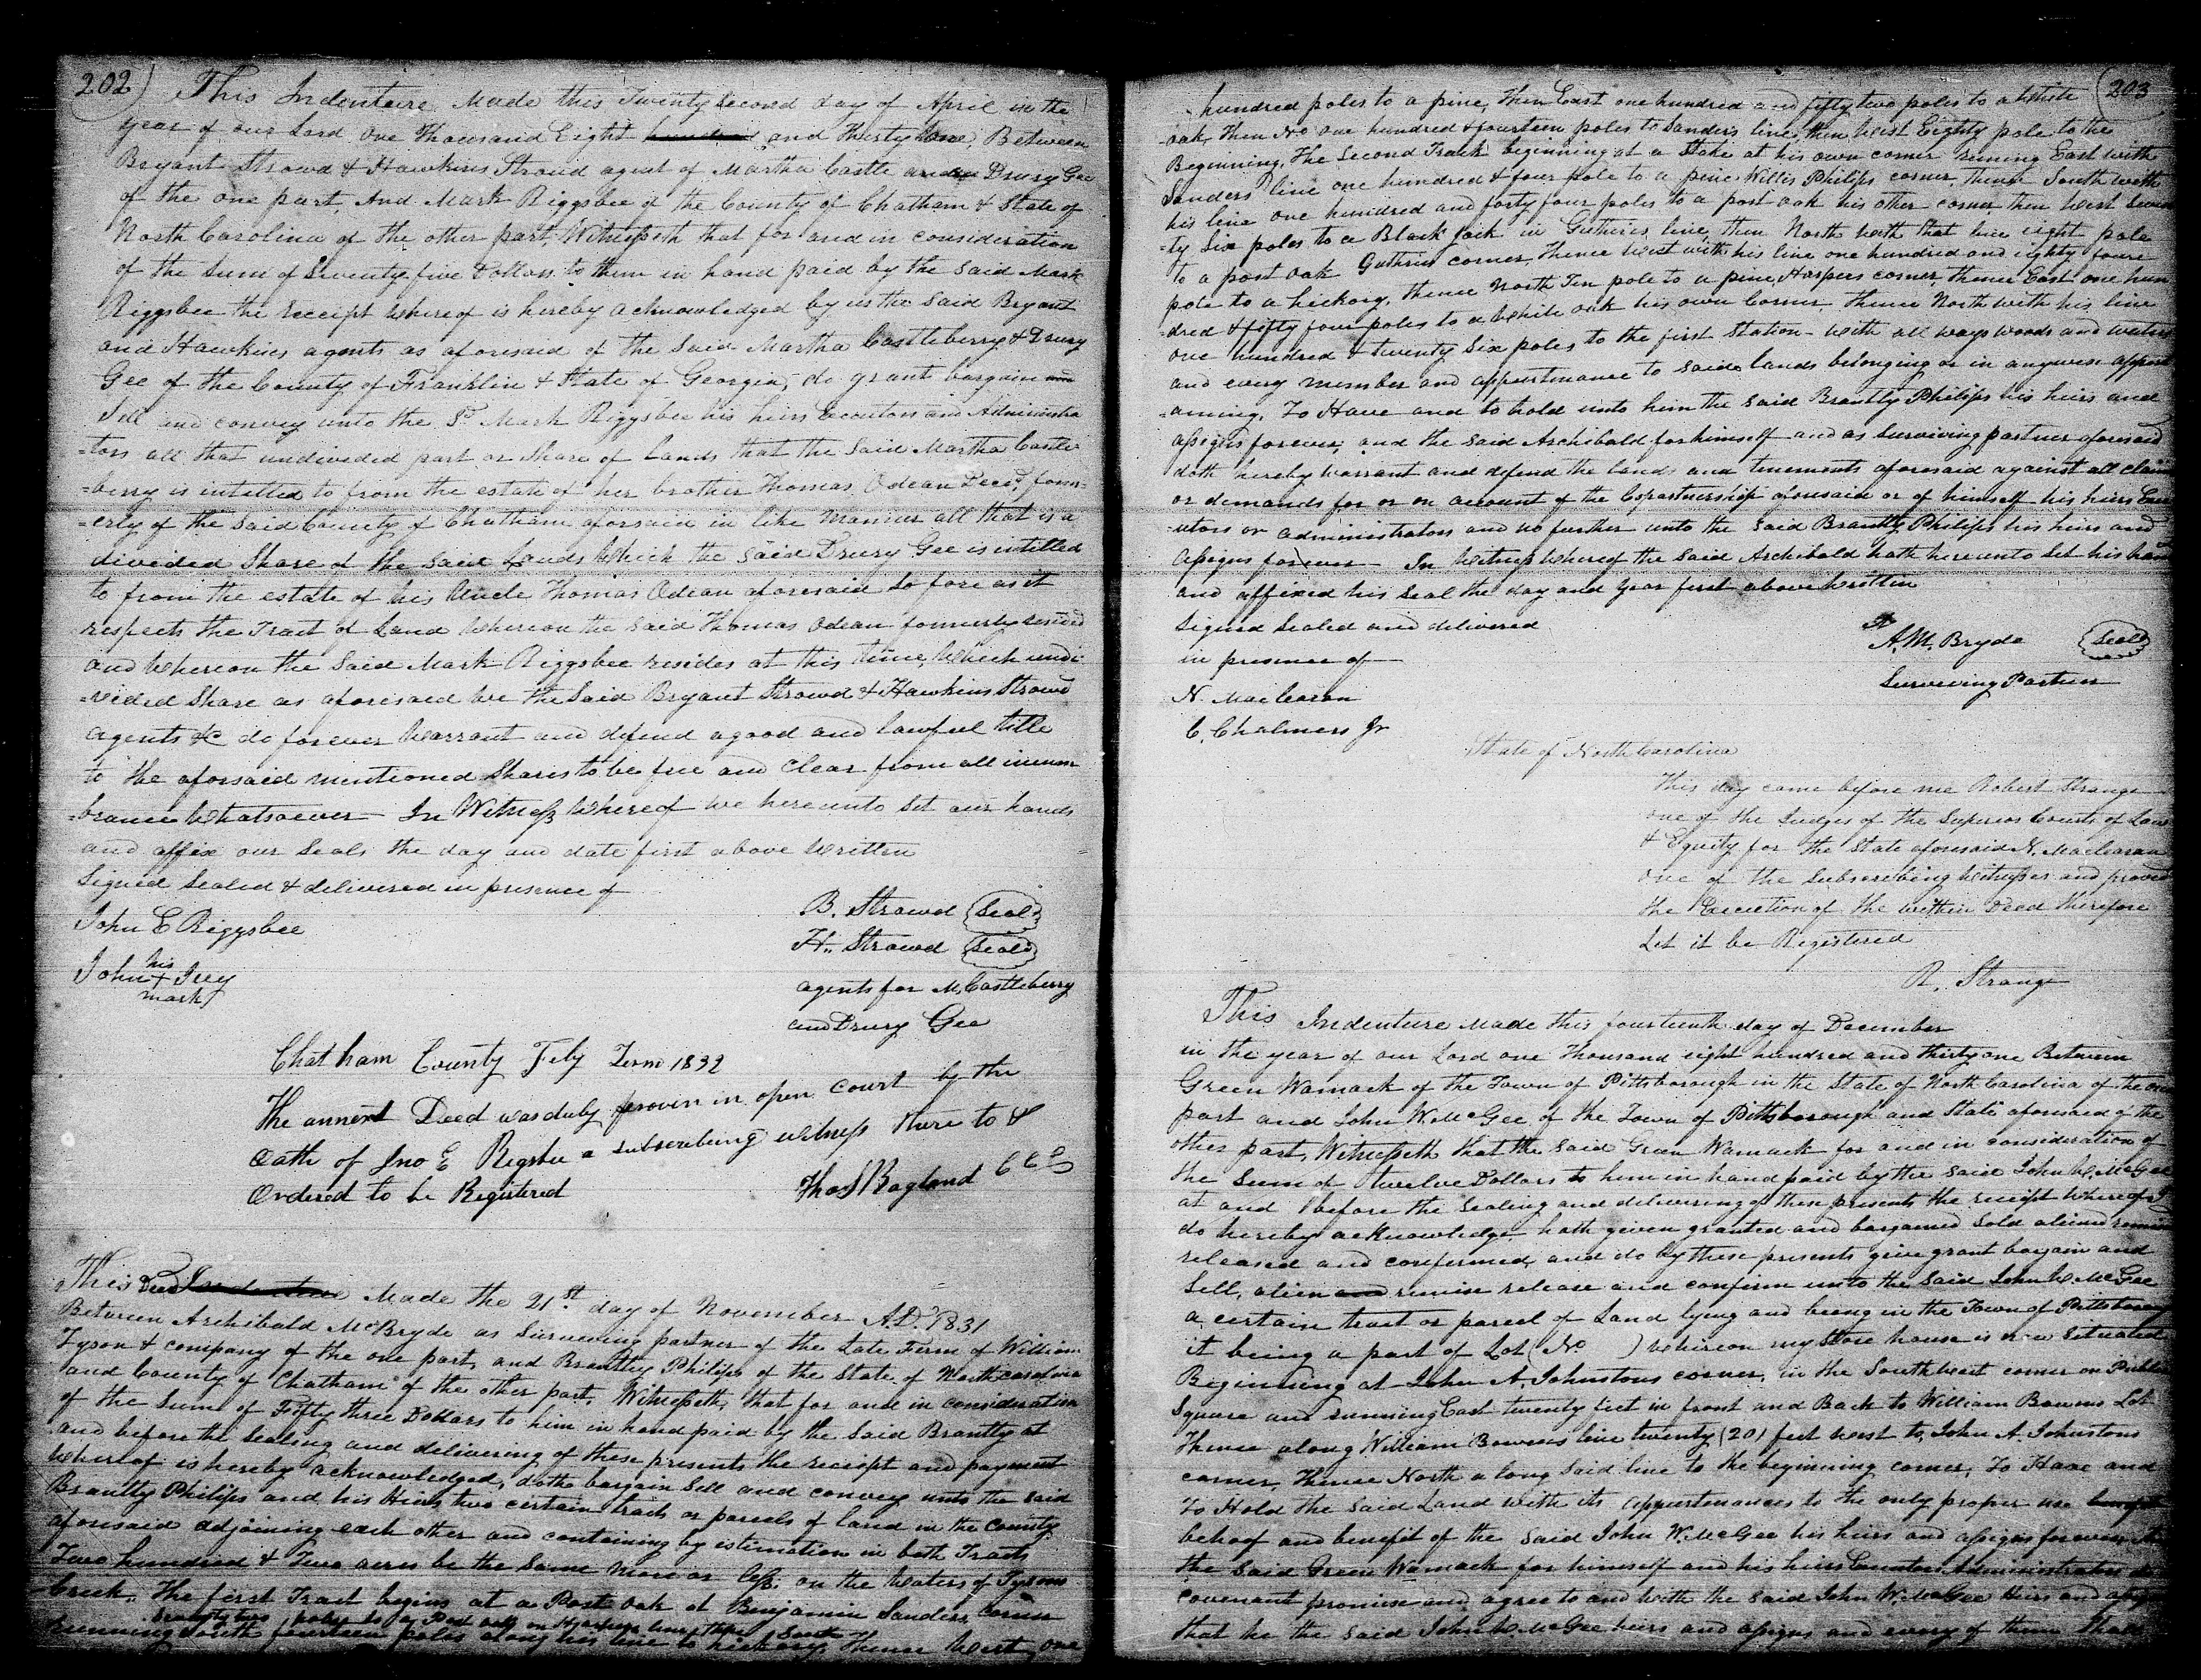 202) This Indenture Made this Twenty Second day of April in the
year of our Lord One Thousand Eight hundred and thirty one, Between
Bryant Strowd & Hawkins Stroud agent of Martha Castle and Drury Gee
of the one part, And Mark Riggsbee of the County of Chatham & State of
North Carolina of the other part, Witnesseth that for and in consideration
of the Sum of Seventy five Dollars to them in hand paid by the Said Mark
Riggsbee the receipt whereof is hereby acknowledged by us the Said Bryant
and Hawkins agents as aforesaid of the Said Martha Castleberry & Drury
Gee of the County of Franklin & State of Georgia, do grant bargain and
Sell and convey unto the Sd Mark Riggsbee his heirs Executors and Administra
=tors all that undivided part or Share of Lands that the Said Martha Castle
=berry is intitled to from the estate of her brother Thomas Odean Decd, form=
=erly of the Said County of Chatham aforsaid in like Manner all that is a
divided Share of the Said Lands Which the Said Drury Gee is intitled
to from the estate of his Uncle Thomas Odean aforesaid So fore as it
respects the Tract of Land Whereon the Said Thomas Odean formerly resided
and Whereon the Said Mark Riggsbee resides at this time, Which undi-
=vided Share as aforesaed We the Said Bryant Strowd & Hawkins Strowd
agents &c do forever Warrant and defend a good and lawful title
to the aforsaid mentioned Shares to be free and Clear from all incum
=brance Whatsoever- In Witness Whereof we hereunto Set our hands
and affix our Seals the day and date first above Written
Signed Sealed & delivered in presence of
John E Riggsbee
B. Strowd Seal
H. Strowd Seal
John his + mark Ivey
agents for M, Castleberry
and Drury Gee
Chatham County Feby Term 1832
The annext Deed was duly proven in open court by the
Oath of Jno E Rigsbee a subscribing witness there to &
Ordered to be Registered
Tho S Ragland CCC
This Deed Indenture Made the 21st. day of November A.D. 1831
Between Archibald McBryde as Surviving partner of the Late Ferm of William
Tyson & company of the one part, and Brantley Philips of the State of North carolina
and County of Chatham of the other part, Witnesseth, that for and in consideration
of the Sum of Fifty three Dollars to him in hand paid by the Said Brantly at
and before the Sealing and delivering of these presents the receipt and payment
Whereof is hereby acknowledged, doth bargain Sell and convey unto the Said
Brantly Philips and his Heirs two certain tracts or parcels of land in the County
aforesaid adjoining each other and containing by estimation in both Tracts
Two hundred & Two acres be the Same More or less on the Waters of Tysons
Creek. The first Tract begins at a Post Oak at Benjamin Sanders Corner
running South fourteen poles along his line to hickory, Thence West, one
203
hundred poles to a pine, Then East one hundred and fifty two poles to a White
oak, Then No one hundred & fourteen poles to Sanders line, then West Eighty pole to the
Beginning, The Second Track beginning at a Stake at his own corner runing East with
Sanders line one hundred & four pole to a pine Willis Philips corner, thence South with
his line one hundred and forty four poles to a post oak his other corner then West Seven
=ty Six poles to a Black Jack in Guthries line, then North with that line eight pole
to a post oak Guthries corner, Thence West with his line one hundred and eighty foure
pole to a hickory, thence North Ten pole to a pine, Harpers corner, thence East one hun
=dred & fifty four poles to a White oak his own Corner, thence North with his line
one hundred & twenty Six poles to the first Station- with all ways woods and waters
and every member and appurtenance to said lands belonging or in anywise appert
=aining, To Have and to hold unto him the Said Brantly Philips his heirs and
assigns forever; and the Said Archibald for himself and as Surviving partner aforesaid
doth hereby Warrant and defend the lands and tenements aforesaid against all claim
or demands for or on account of the Copartnership aforesaid or of himself his heirs Exec
=utors or administrators and no further unto the Said Brantly Philips his heirs and
assigns forever- In Witness Whereof the Said Archibald hath hereunto Set his hand
and affixed his Seal the day and year first above Written
Signed Sealed and delivered
in presence of
A. Mc Bryde Seal
Surviving Partner
N. Maclearan
C. Chalmers Jr
State of North Carolina
This day came before me Robert Strange
one of the Judges of the Superior Courts of Law
& Equity for the State aforesaid N. Maclearan
one of the Subscribing Witnesses and proved
the Execution of the within Deed therefore
Let it be Registered
R. Strange
This Indenture Made this fourteenth day of December
in the year of our Lord one Thousand eight hundred and thirty one Between
Green Wamack of the Town of Pittsborough in the State of North Carolina of the one
part and John W. McGee of the Town of Pittsborough and State aforesaid of the
other part, Witnesseth that the Said Green Wamack for and in consideration of
the Sum of twelve Dollars to him in hand paid by the Said John W. McGee
at and before the Sealing and delivering of these presents the receipt whereof I
do hereby acknowledge hath given granted and bargained Sold aliened remised
released and confirmed, and do by these presents give grant bargain and
Sell, alien and remise release and confirm unto the Said John W McGee
a certain tract or parcel of Land lying and being in the Town of Pittsborough
it being a part of Lot (No ) Whereon my Store house is now Situated
Beginning at John A. Johnstons corner, in the Southwest corner on Public
Square and running East twenty feet in front and Back to William Bowens Lot
Thence along William Bowens line twenty (20) feet West to, John A. Johnstons
corner, Thence North along Said line to the beginning corner, To Have and
To Hold the Said Land with its appurtenances to the only proper use benefit
behoof and benefit of the Said John W. McGee his heirs and assigns forever
the Said Green Wamack for himself and his heirs Executors Administrators do
covenant promise and agree to and with the Said John W. McGee Heirs and assigns
that he the Said John W McGee heirs and assigns and every of them Shall